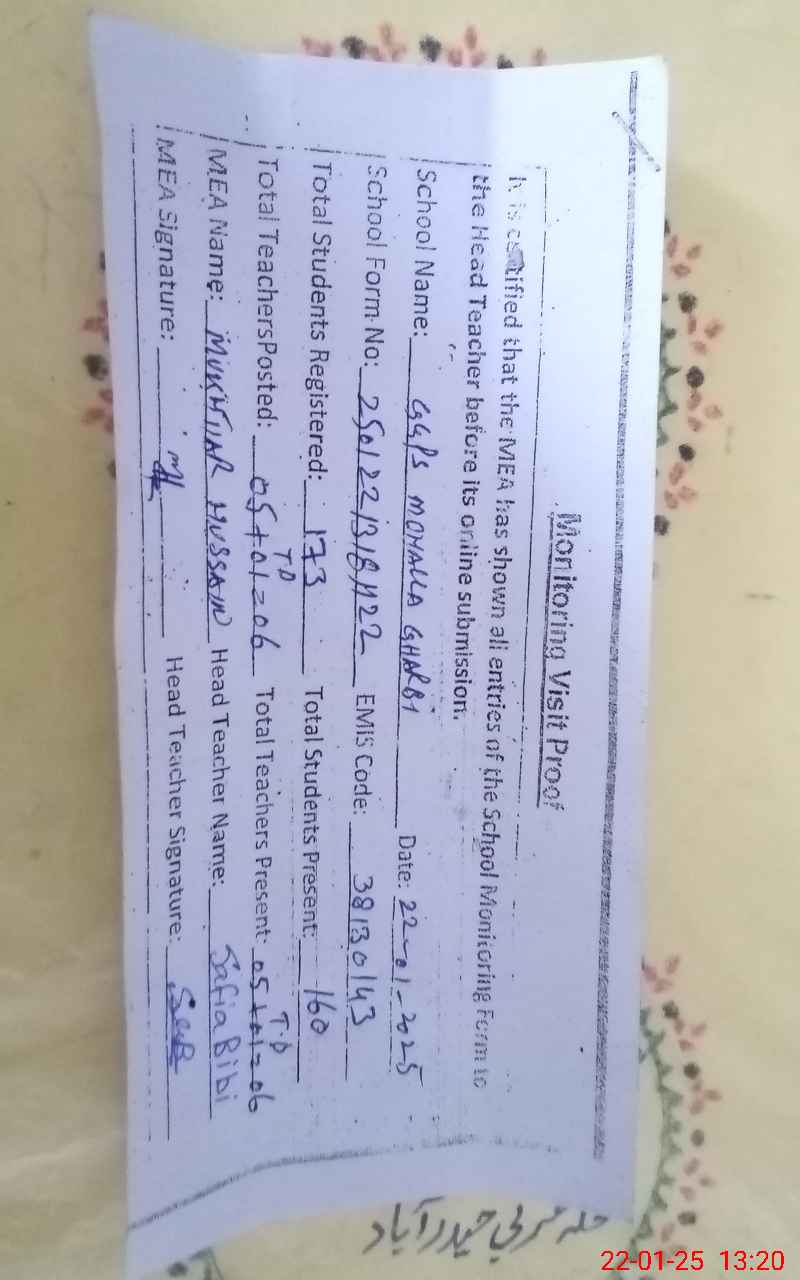 Monitoring Visit Proof
It is certified that the MEA has shown all entries of the School Monitoring Form to
the Head Teacher before its online submission.
School Name: GGPS MOHALLA GHARBI Date: 22-01-2025
School Form No: 25012213181122 EMIS Code: 38130143
Total Students Registered: 173 Total Students Present: 160
Total TeachersPosted: 05+01 TD=06 Total Teachers Present: 05+01 T.D=06
MEA Name: MUKHTIAR HUSSAIN Head Teacher Name: Safia Bibi
MEA Signature: Head Teacher Signature:
محلہ غربی حیدرآباد
22-01-25 13:20